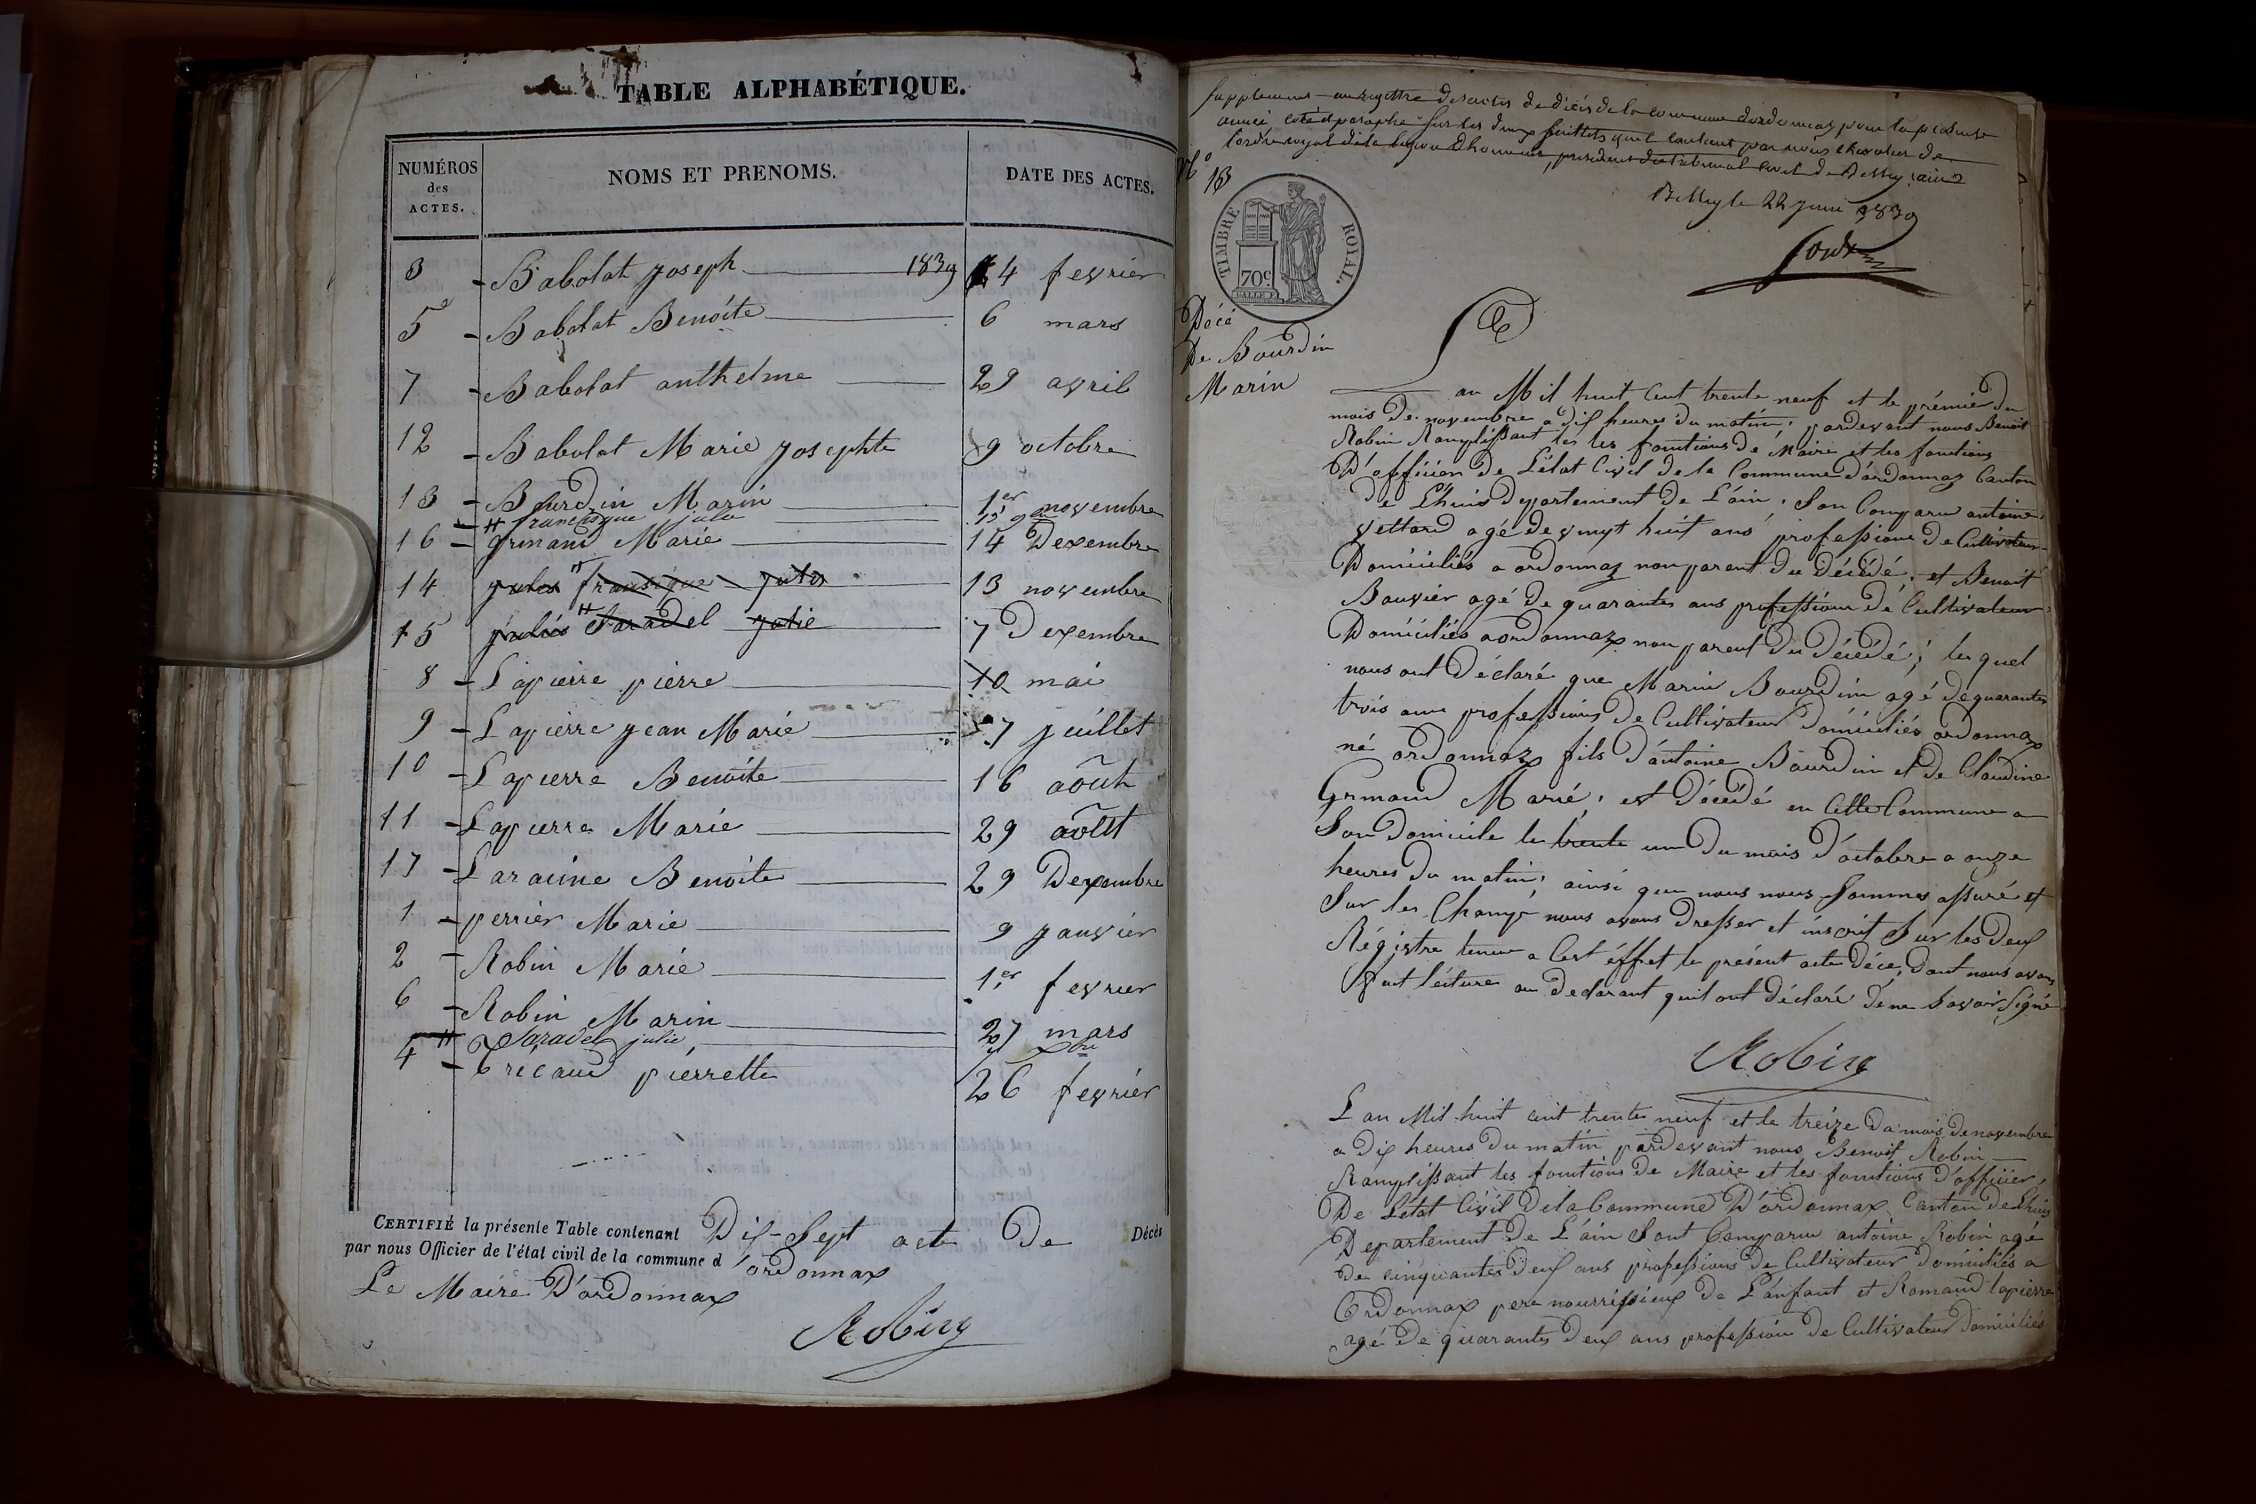 TABLE ALPHABÉTIQUE.
NUMÉROS des ACTES.
NOMS ET PRENOMS.
DATE DES ACTES.
3 - Babolat joseph 1839 4 fevrier
5 - Babolat Benoite 6 mars
7 - Babolat anthelme 29 avril
12 - Babolat Marie josephte 9 octobre
13 - Bourdin Marin 1er novembre
- # francisque jule
16 - grimand Marie 14 Decembre
14 jules fransique jules 13 novembre
15 julies Saradel julie 7 Decembre
8 - Lapierre pierre 10 mai
9 - Lapierre jean Marie 7 juillet
10 - Lapierre Benoite 16 août
11 - Lapierre Marie 29 août
17 - Laracine Benoite 29 Decembre
1 - perrier Marie 9 janvier
2 - Robin Marie 1er fevrier
6 - Robin Marin 27 mars
# Saradel julie
4 - Trécaud pierrette 26 fevrier
CERTIFIÉ la présente Table contenant Dix-Sept acte De Décès
par nous Officier de l'état civil de la commune d'ordonnax
Le Maire D'ordonnax
Robin
Supplement au registre des actes de décès de la commune d'ordonnaz, pour la présente
année coté et paraphé sur les deux feuillets par nous chevalier de
l'ordre royal de la légion d'honneur, president du tribunal civil de Belley, ain
Belley le 22 1839
N° 13
TIMBRE ROYAL.
70c.
Décé
De Bourdin
Marin
an Mil huit Cent trente neuf et le prémier du
mois De novembre a dix heures du matin, pardevant nous Benoit
Robin Ramplissant les les fonctions De Maire et les fonctions
D'officier De L'état Civil de la Commune D'ordonnaz Canton
De L'huis Departement De L'ain, Son Comparu antoine
Vettard agé De vingt huit ans profession De Cultivateur
Domiciliés a ordonnaz non parent Du Décédé, et Benoit
Bouvier agé De quarante ans profession Dé Cultivateur
Domiciliés a ordonnax non parent Du Décédé; les quel
nous ont Déclaré que Marin Bourdin agé De quarante
trois ans profession De Cultivateur Domiciliés ordonnax
né ordonnax fils D'antoine Bourdin et De Claudine
Grimand Marié, est Décédé en Cette Commune a
Son Domicile le trente un Du mois D'octobre a onze
heures Du matin; ainsi que nous nous Sommes assuré et
Sur les Champ nous avons Dresser et inscrit Sur les Deux
Régistre tenue a Cest éffet le présent acte Décé, Dont nous avons
fait lécture au Declarant quil ont Déclaré De ne Savoir Signé
Robin
L'an Mil huit cent trente neuf et le treize Du mois De novembre
a Dix heures Du matin pardevant nous Benoit Robin
Ramplissant les fonctions De Maire et les fonctions D'officier
De L'état Civil De la Commune D'ordonnax Canton De Lhuis
Departement De L'ain Sont Comparu antoine Robin agé
De cinquante Deux ans profession De Cultivateur Domiciliés a
Ordonnax pere nourrissieux De L'anfant et Romand Lapierre
agé De quarante Deux ans profession De Cultivateur Domiciliés